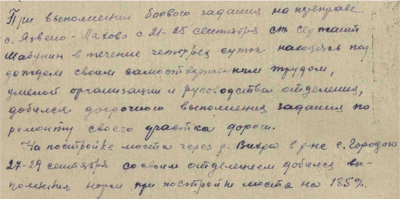 При выполнении боевого задания на переправе
с. Язвено-Ляхово с 21-25 сентября ст. сержант
Мабунин в течение четырех суток находясь под
дождем своим самоотверженным трудом,
умелой организации и руководства отделения,
добился досрочного выполнения задания по
ремонту своего участка дороги.
На постройке моста через р. Вихра в р-не с. Городок
27-29 сентября со своим отделением добился вы-
полнения норм при постройке моста на 185%.